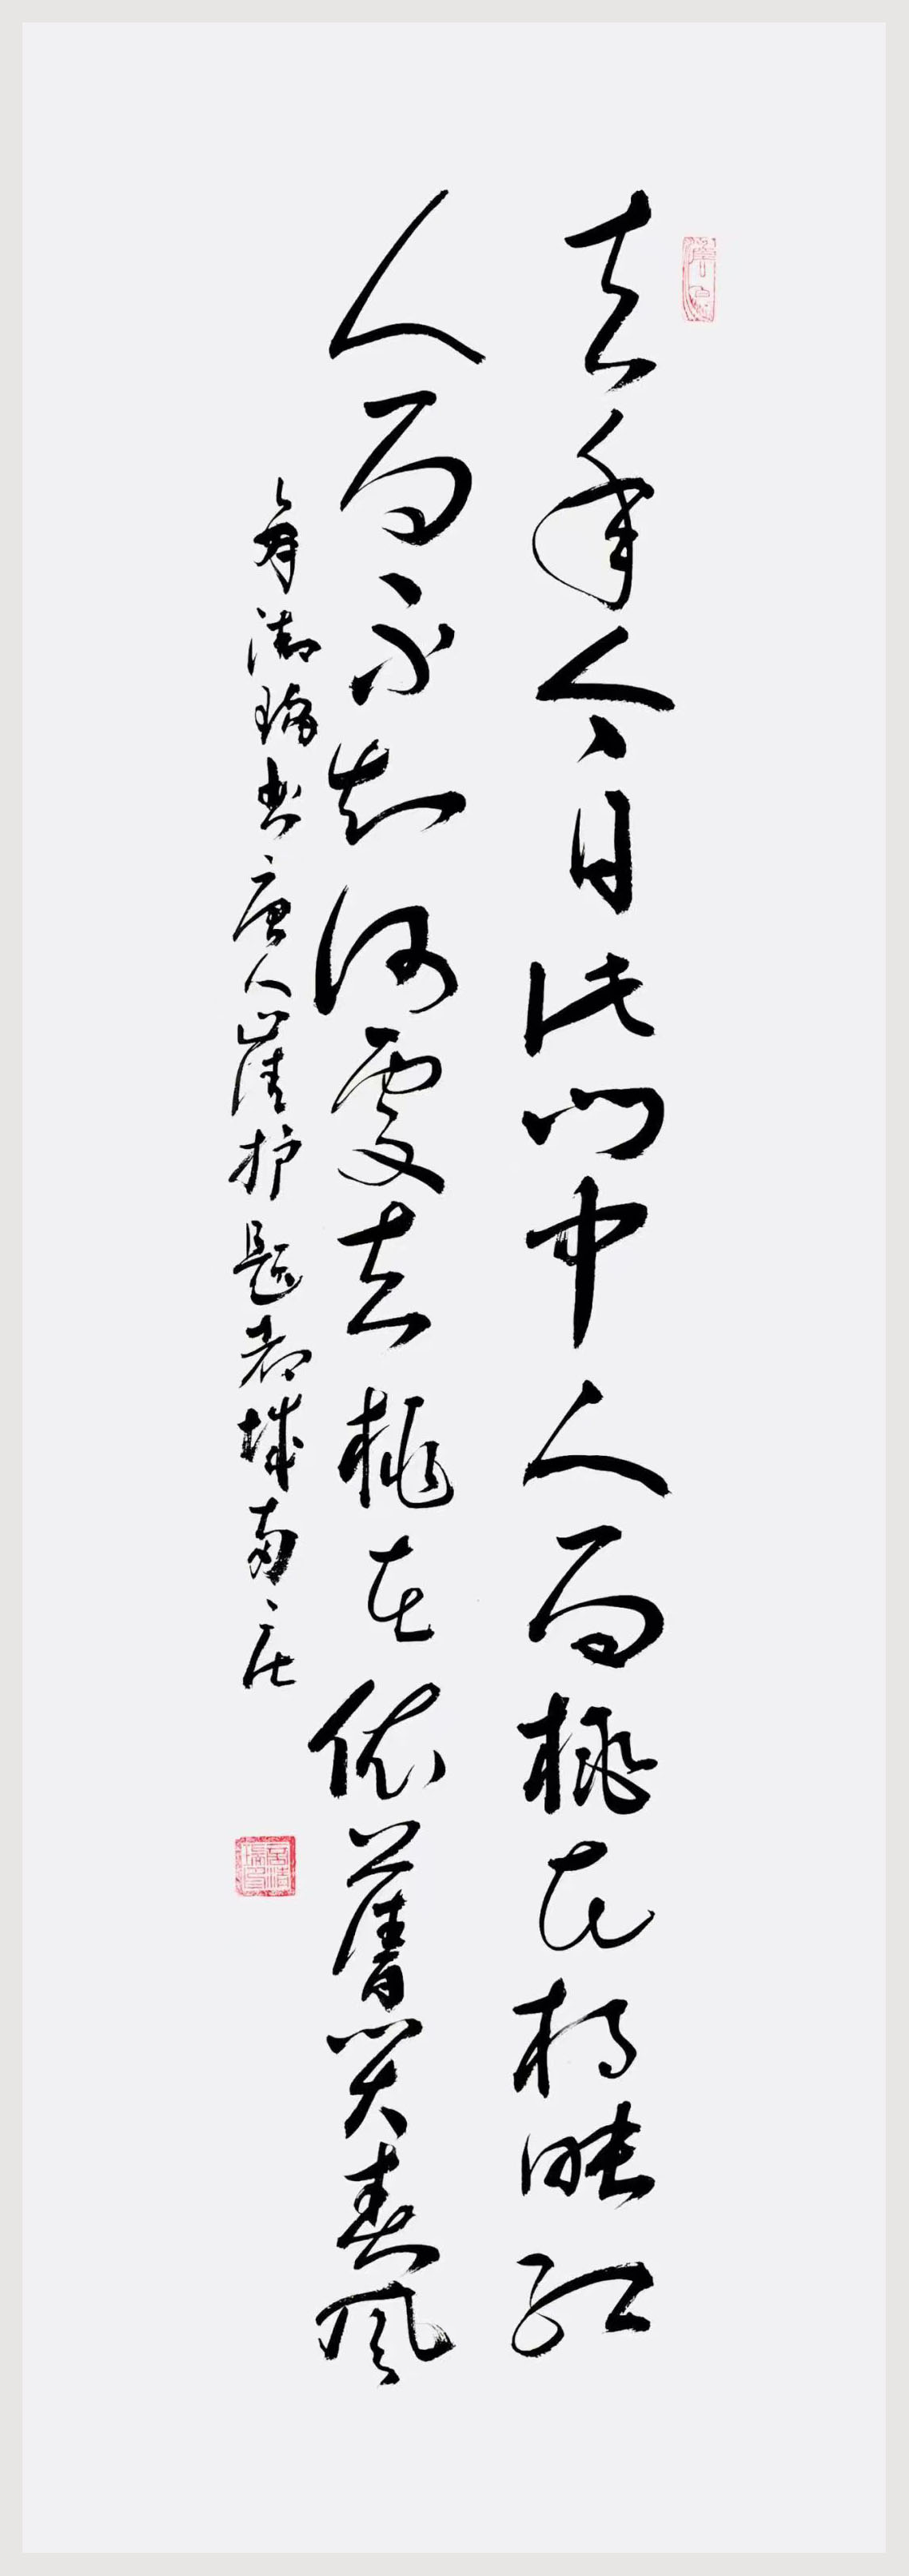 去年今日此門中人面桃花相映紅
人面不知何處去桃花依舊笑春風
书唐人崔护题都城南庄